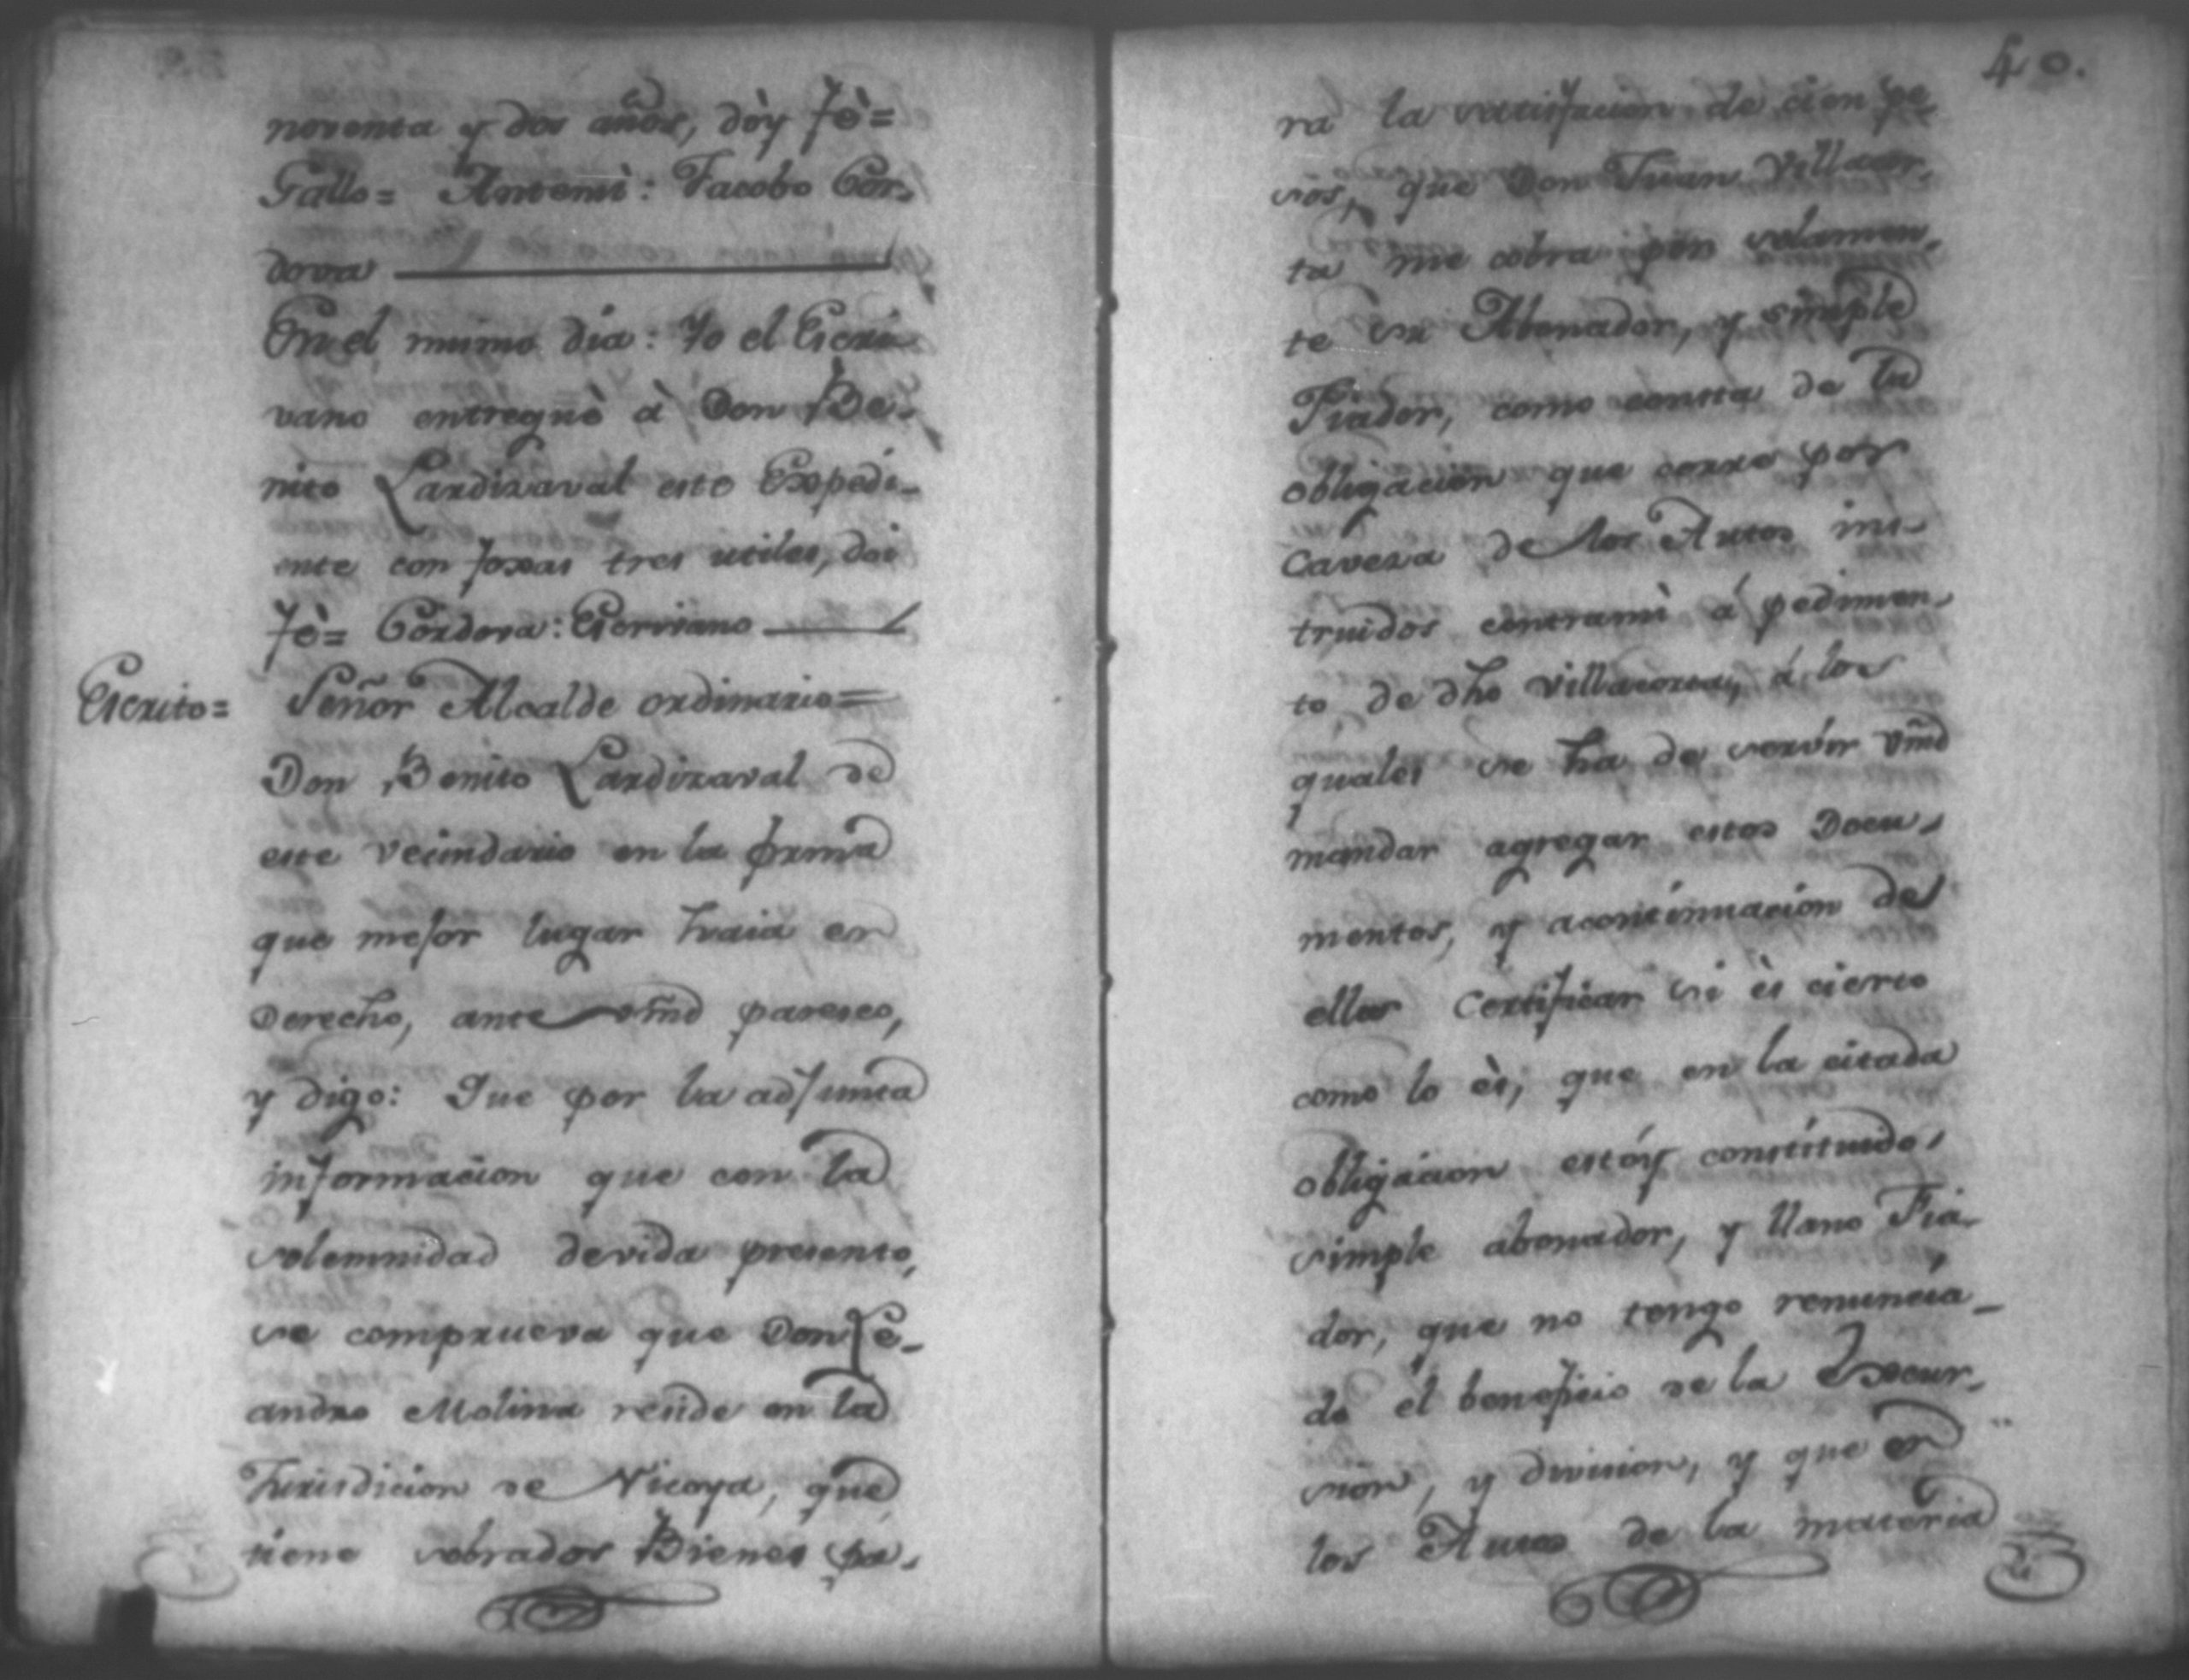 noventa y dos años, dòy fè=
Gallo= Antemì: Jacobo Cor-
dova
En el mismo dia: Yo el Escri-
vano entreguè à Don Be-
nito Lardizaval este Expedi-
ente con foxas tres utiles, doi
fè= Còrdova: Escrivano
Escrito= Señor Alcalde ordinario=
Don Benito Lardizaval de
este vecindario en la forma
que mejor lugar haia en
Derecho, ante vmd paresco,
y digo: Que por la adjunta
informacion que con la
solemnidad devida presento,
se comprueva que Don Le-
andro Molina reside en la
Jurisdicion de Nicoya, que
tiene sobrados Bienes pa-
40.
ra la satisfacion de cien pe-
sos, que Don Juan Villacor-
ta me cobra por solamen-
te su Abonador, y simple
Fiador, como consta de la
obligacion que corre por
Caveza de los Autos ins-
truidos contramì á pedimen-
to de dho Villacorta, á los
quales se ha de servir Vmd
mandar agregar estos Docu-
mentos, y acontinuación de
ellos Certificar si ès cierto
como lo ès, que en la citada
obligacion estóy constituido
simple abonador, y llano Fia-
dor, que no tengo renuncia-
do el beneficio de la Excur-
sion, y division, y que en
los Autos de la materia